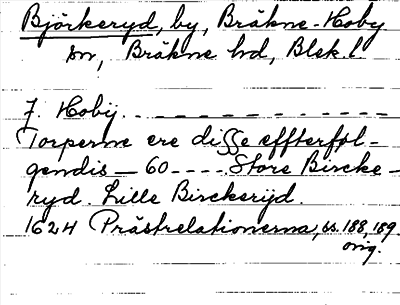 Björkeryd, by, Bräkne-Hoby
sn, Bräkne hd, Blek.l.
J. Hobÿ. – – – – – – – – – –
Torperne ere disse effterføl-
gendis – 60 – – – – Store Bircke-
ryd. Lille Birckerÿd.
1624 Prästrelationerna, ss. 188, 189.
orig.